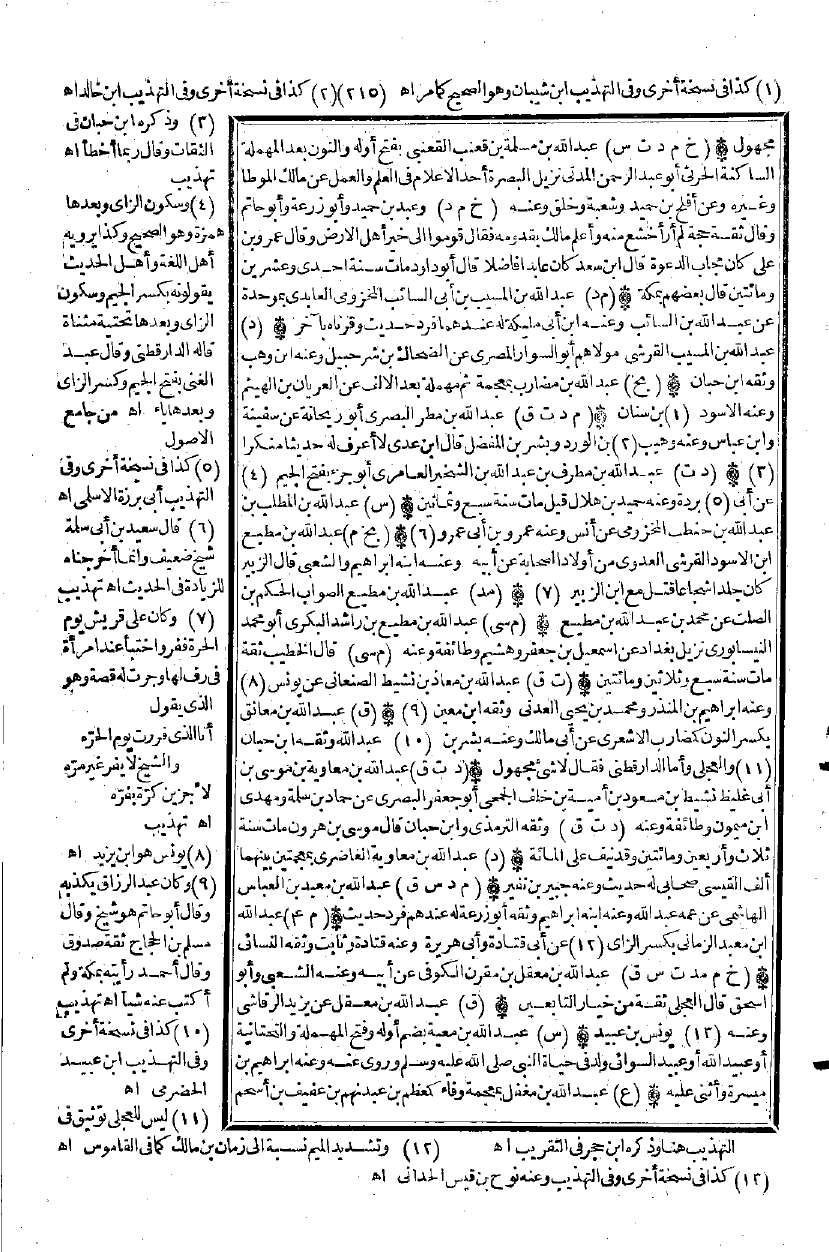 (١) كذا فى نسخة أخرى وفى التهذيب ابن شيبان وهو الصحيح كما مر اه (٢١٥) (٢) كذا فى نسخة أخرى وفى التهذيب ابن خالد اه
مجهول ۞ (خ م د ت س) عبدالله بن مسلمة بن قعنب القعنبى بفتح أوله والنون بعد المهملة
الساكنة الحرثى أبو عبد الرحمن المدنى نزيل البصرة أحد الاعلام فى العلم والعمل عن مالك الموطا
وغيره وعن أفلح بن حميد وشعبة وخلق وعنه (خ م د) وعبد بن حميد وأبو زرعة وأبو حاتم
وقال ثقة حجة لم أر أخشع منه وأعلم مالك بقدومه فقال قوموا الى خير أهل الارض وقال عمرو بن
على كان مجاب الدعوة قال ابن سعد كان عابدا فاضلا قال أبو داود مات سنة احدى وعشرين
ومائتين قال بعضهم بمكة ۞ (م د) عبدالله بن المسيب بن أبى السائب المخزومى العابدى بموحدة
عن عبدالله بن السائب وعنه ابن أبى مليكة له عندهما فرد حديث وقرناه بآخر ۞ (د)
عبدالله بن المسيب القرشى مولاهم أبو السوار المصرى عن الضحاك بن شرحبيل وعنه ابن وهب
وثقه ابن حبان ۞ (بخ) عبدالله بن مضارب بمعجمة ثم مهملة بعد الالف عن العريان بن الهيثم
وعنه الاسود (١) بن سنان ۞ (م د ت ق) عبدالله بن مطر البصرى أبو ريحانة عن سفينة
وابن عباس وعنه وهيب (٢) بن الورد وبشر بن المفضل قال ابن عدى لا أعرف له حديثا منكرا
(٣) ۞ (د ت) عبدالله بن مطرف بن عبدالله بن الشخير العامرى أبو جزء بفتح الجيم (٤)
عن أبى (٥) بردة وعنه حميد بن هلال قيل مات سنة سبع وثمانين ۞ (س) عبدالله بن المطلب بن
عبدالله بن حنطب المخزومى عن أنس وعنه عمرو بن أبى عمرو (٦) ۞ (بخ م) عبدالله بن مطيع
ابن الاسود القرشى العدوى من أولاد الصحابة عن أبيه وعنه ابنه ابراهيم والشعبى قال الزبير
كان جلدا شجاعا قتل مع ابن الزبير (٧) ۞ (مد) عبدالله بن مطيع الصواب الحكم بن
الصلت عن محمد بن عبدالله بن مطيع ۞ (م سى) عبدالله بن مطيع بن راشد البكرى أبو محمد
النيسابورى نزيل بغداد عن اسمعيل بن جعفر وهشيم وطائفة وعنه (م سى) قال الخطيب ثقة
مات سنة سبع وثلاثين ومائتين ۞ (ت ق) عبدالله بن معاذ بن نشيط الصنعانى عن يونس (٨)
وعنه ابراهيم بن المنذر ومحمد بن يحيى العدنى وثقه ابن معين (٩) ۞ (ق) عبدالله بن معانق
بكسر النون كضارب الاشعرى عن أبى مالك وعنه بشر بن (١٠) عبدالله وثقه ابن حبان
(١١) والعجلى وأما الدارقطنى فقال لا شئ مجهول ۞ (د ت ق) عبدالله بن معاوية بن موسى بن
أبى غليظ نشيط بن مسعود بن أمية بن خلف الجمحى أبو جعفر البصرى عن حماد بن سلمة ومهدى
ابن ميمون وطائفة وعنه (د ت ق) وثقه الترمذى وابن حبان قال موسى بن هرون مات سنة
ثلاث وأربعين ومائتين وقد نيف على المائة ۞ (د) عبدالله بن معاوية الغاضرى بمعجمتين بينهما
ألف القيسى صحابى له حديث وعنه جبير بن نفير ۞ (م د س ق) عبدالله بن معبد بن العباس
الهاشمى عن عمه عبدالله وعنه ابنه ابراهيم وثقه أبو زرعة له عندهم فرد حديث ۞ (م عم) عبدالله
ابن معبد الزمانى بكسر الزاى (١٢) عن أبى قتادة وأبى هريرة وعنه قتادة وثابت وثقه النسائى
۞ (خ م مد ت س ق) عبدالله بن معقل بن مقرن الكوفى عن أبيه وعنه الشعبى وأبو
اسحق قال العجلى ثقة من خيار التابعين ۞ (ق) عبدالله بن معقل عن يزيد الرقاشى
وعنه (١٣) يونس بن عبيد ۞ (س) عبدالله بن معية بضم أوله وفتح المهملة والتحتانية
أو عبيدالله أو عبيد السوائى ولد فى حياة النبى صلى الله عليه وسلم وروى عنه وعنه ابراهيم بن
ميسرة وأثنى عليه ۞ (ع) عبدالله بن مغفل بمعجمة وفاء كمعظم بن عبدنهم بن عفيف بن أسحم
(٣) وذكره ابن حبان فى
الثقات وقال ربما أخطأ اه
تهذيب
(٤) وسكون الزاى وبعدها
همزة وهو الصحيح وكذا يرويه
أهل اللغة وأهل الحديث
يقولونه بكسر الجيم وسكون
الزاى وبعدها تحتية مثناة
قاله الدارقطنى وقال عبد
الغنى بفتح الجيم وكسر الزاى
وبعدها ياء اه من جامع
الاصول
(٥) كذا فى نسخة أخرى وفى
التهذيب أبى برزة الاسلمى اه
(٦) قال سعيد بن أبى سلمة
شيخ ضعيف وانما أخرجناه
للزيادة فى الحديث اه تهذيب
(٧) وكان على قريش يوم
الحرة ففر واختبأ عند امرأة
فى رف لها وجرت له قصة وهو
الذى يقول
أنا الذى فررت يوم الحره
والشيخ لا يفر غير مره
لاجزين كرة بفره
اه تهذيب
(٨) يونس هو ابن يزيد اه
(٩) وكان عبد الرزاق يكذبه
وقال أبو حاتم هو شيخ وقال
مسلم بن الحجاج ثقة صدوق
وقال أحمد رأيته بمكة ولم
أكتب عنه شيأ اه تهذيب
(١٠) كذا فى نسخة أخرى
وفى التهذيب ابن عبيد
الحضرمى اه
(١١) ليس للعجلى توثيق فى
التهذيب هنا وذكره ابن حجر فى التقريب اه (١٢) وتشديد الميم نسبة الى زمان بن مالك كما فى القاموس اه
(١٣) كذا فى نسخة أخرى وفى التهذيب وعنه نوح بن قيس الحدانى اه